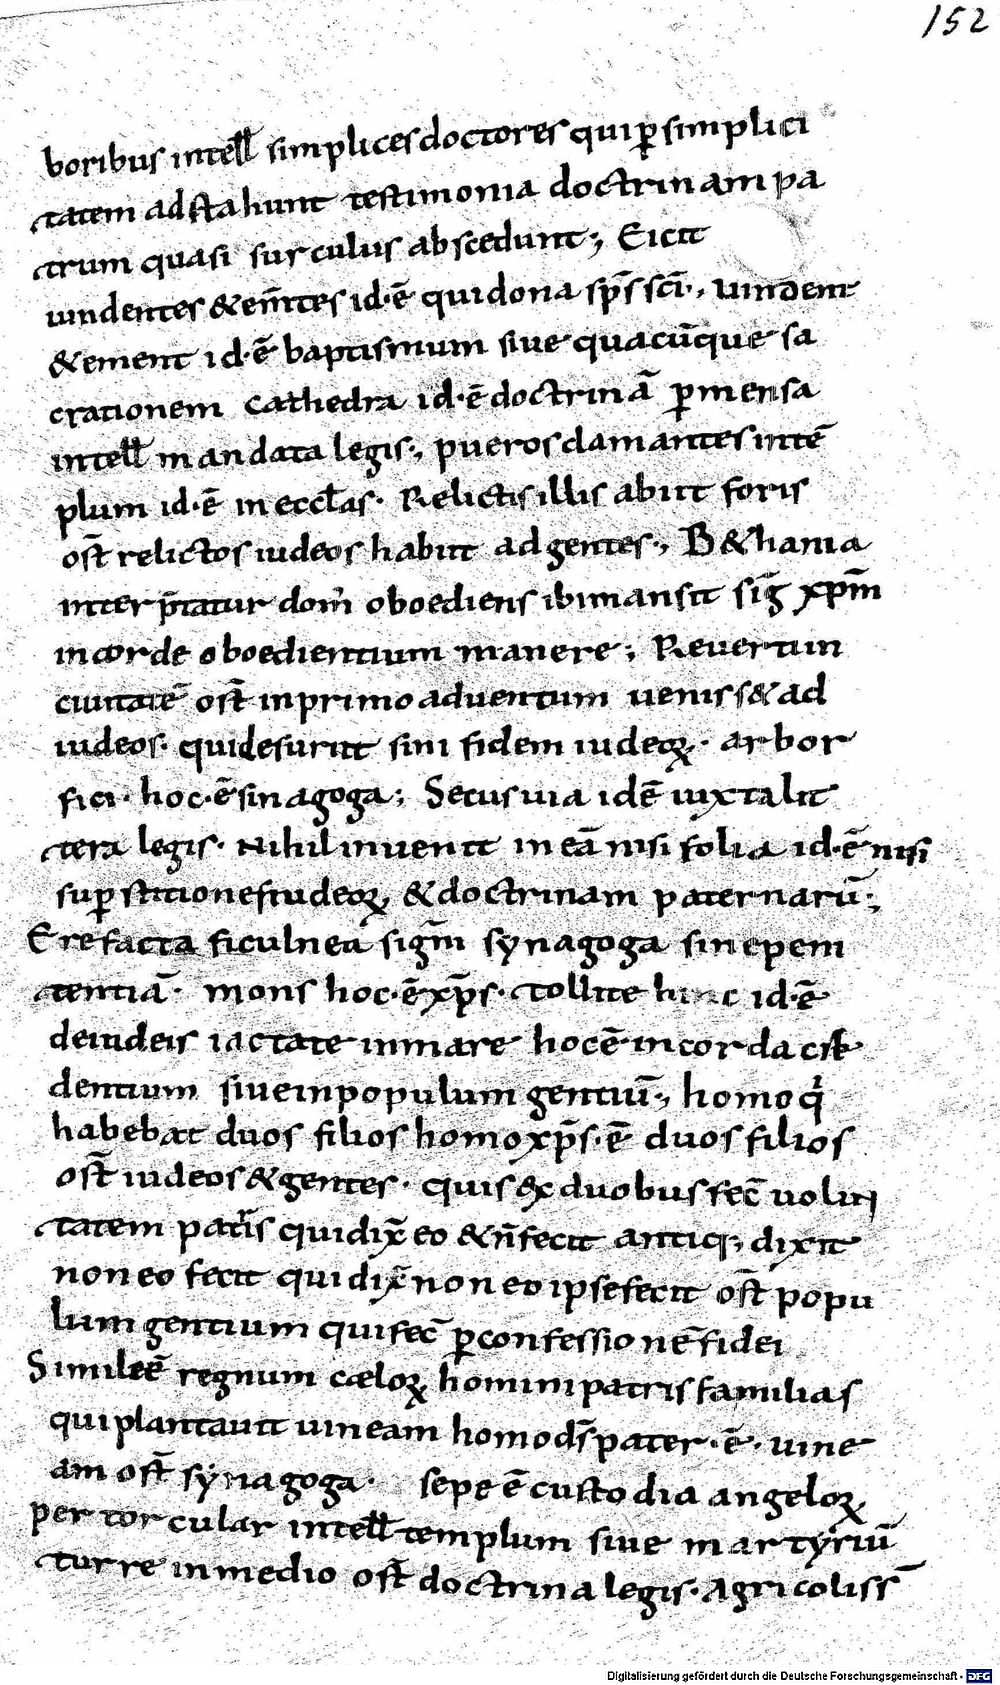 152
boribus intell simplices doctores qui p̱ simplici
tatem adstahunt testimonia doctrinam pa
trum quasi surculus abscedunt; Eicit
uindentes & em̄tes id·ē qui dona sp̄s sc̄i·, uindent
& ement id·ē baptismum siue quacūque sa
crationem cathedra id·ē doctrinā p̱ mensa
intell mandata legis·, pueros clamantes in tē
plum id·ē in eccłas· Relictis illis abiit foris
ost̄ relictos iudeos habiit ad gentes·, B&hania
inter p̄tatur dom̄ oboediens ibi mansit sig̅ xp̄m
in corde oboedientium manere·, Reuert in
ciuitatē ost̄ in primo aduentum uenis s& ad
iudeos· qui desurit sini fidem iudeoꝝ· arbor
fici· hoc·ē sinagoga; Secus uia id ē iuxta lit
tera legis· Nihil inuenit in eā nisi folia id·ē nisi
sup̱stitiones iudeoꝝ, & doctrinam paternarū;
Erefacta ficulnea sigm̄ synagoga sine peni
tentiā· mons hoc·ē xp̄s· tollite hinc id·ē
de iudeis iactate in mare hoc ē· in corda cre
dentium siue in populum gentiū·, homo q̇
habebat duos filios homo xp̄s·ē duos filios
ost̄ iudeos & gentes· quis ex duobus fec̄ uolun
tatem patris qui dix̄ eo & n̄ fecit antiq; dixit
non eo fecit qui dix̄ non eo ipse fecit ost̄ popu
lum gentium qui fec̄ p̱ confessionē fidei
Simile ē regnum cæloꝝ homini patris familias
qui plantauit uineam homo d̄s pater·ē· uine
am ost̄ synagoga· sepe ē custodia angeloꝝ,
per torcular intell templum siue martyriū
turre in medio ost̄ doctrina legis· Agricolis s̄
Digitalisierung gefördert durch die Deutsche Forschungsgemeinschaft - DFG